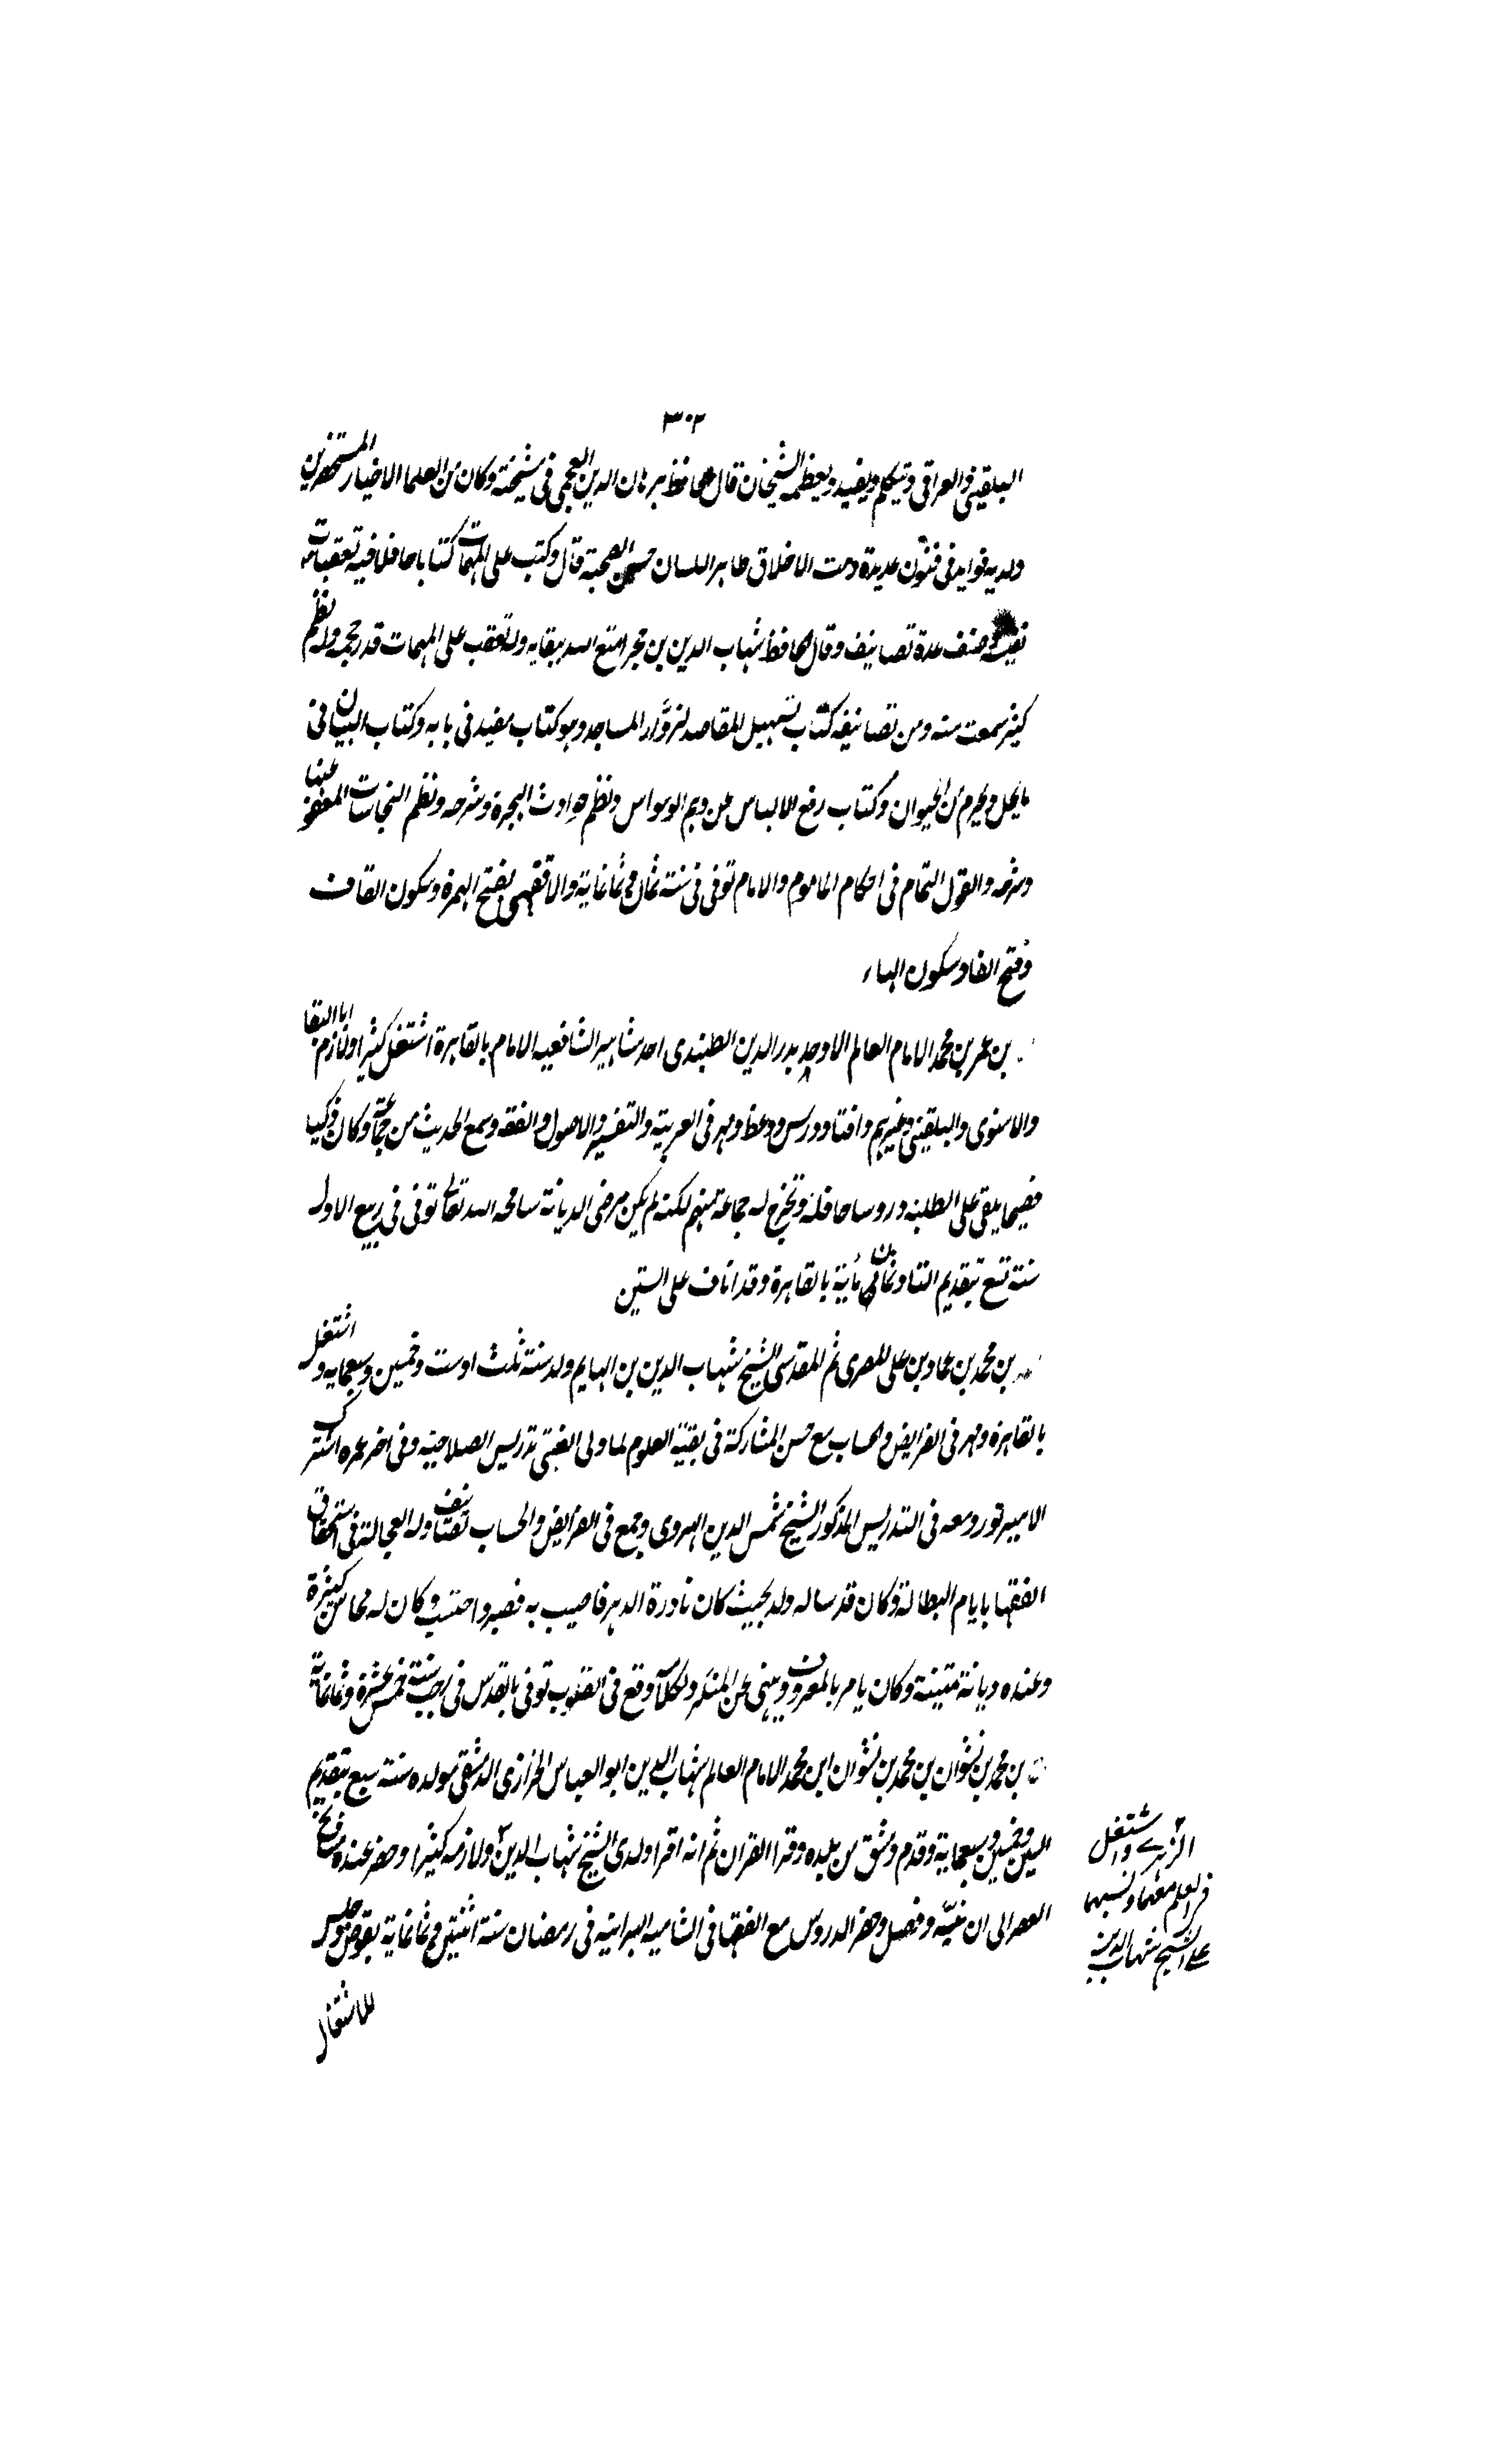 ٣٠٢
البلقيني والعراقي ويتكلم ويفيد ويعظمه الشيخان قال الحافظ برهان الدين العجمي في مشيخته وكان من العلما الاخيار المستحضرين
ولديه فوايد في فنون عديدة دمث الاخلاق طاهر اللسان حسن الصحبة قال وكتب على المهمات كتابا حافلا فيه تعقبات
نفيسة وصنف عدة تصانيف وقال الحافظ شهاب الدين بن حجر امتع الله ببقايه وله تعقب على المهمات قدر حجمه وله نظم
كثير سمعت منه ومن تصانيفه كتاب تسهيل المقاصد لزوّار المساجد وهو كتاب مفيد في بابه وكتاب البيان في
ما يحل ويحرم من الحيوان وكتاب رفع الالباس عن وهم الوسواس ونظم حوادث الهجرة وشرحه ونظم النجاسات المعفو عنها
وشرحه والقول التمام في احكام الماموم والامام توفي في سنة ثمان وثمانماية والاقفهسي بفتح الهمزة وسكون القاف
وفتح الفا وسكون الهاء
بن عمر بن محمد الامام العالم الاوحد بدر الدين الطنبدي احد مشاهير الشافعيه الامام بالقاهرة اشتغل كثيرا ولازم ابا البقا
والاسنوي والبلقيني وغيرهم وافتا ودرس ووعظ ومهر في العربية والتفسير والاصول والفقه وسمع الحديث من جماعة وكان ذكيا
فصيحا يلقي على الطلبة دروسا حافلة وتخرج له جماعة منهم لكنه لم يكن مرضي الديانة سامحه الله تعالى توفي في ربيع الاول
سنة تسع بتقديم التا وثمان مأية بالقاهرة وقد اناف على الستين
بن محمد بن عماد بن علي المصري ثم المقدسي الشيخ شهاب الدين بن الهايم ولد سنة ثلث او ست وخمسين وسبعمايه واشتغل
بالقاهرة ومهر في الفرايض والحساب مع حسن المشاركة في بقية العلوم لما ولي القمني تدريس الصلاحية وفي اخر عمره اشترك
الامير نوروز معه في التدريس المذكور الشيخ شمس الدين الهروي وجمع في الفرايض والحساب تصانيف وله العجالة في استحقاق
الفقها بايام البطالة وكان قد ساله ولد نجيب كان نادرة الدهر فاصيب به فصبر واحتسب وكان له محاسن كثيرة
وعنده ديانة متينة وكان يامر بالمعروف وينهي عن المنكر ولكلامه وقع في القلوب توفي بالقدس في رجب سنة خمس عشرة وثمانماية
بن محمد بن نشوان بن محمد بن نشوان ابن محمد الامام العالم شهاب الدين ابو العباس الحرازي الدمشقي مولده سنة سبع بتقديم
السين وخمسين وسبعماية وقدم دمشق من بلده وقرا القران ثم انه اقرا ولدي الشيخ شهاب الدين ولازمه كثيرا وحضر عنده مشايخ
العصر الى ان تنبّه وفضل وحضر الدروس مع الفقها في الشاميه البرانيه في رمضان سنة اثنتين وثمانماية وجلس
الزهري واشتغل
في العلم معهما وبسببهما
على الشيخ شهاب الدين
للاشتغال